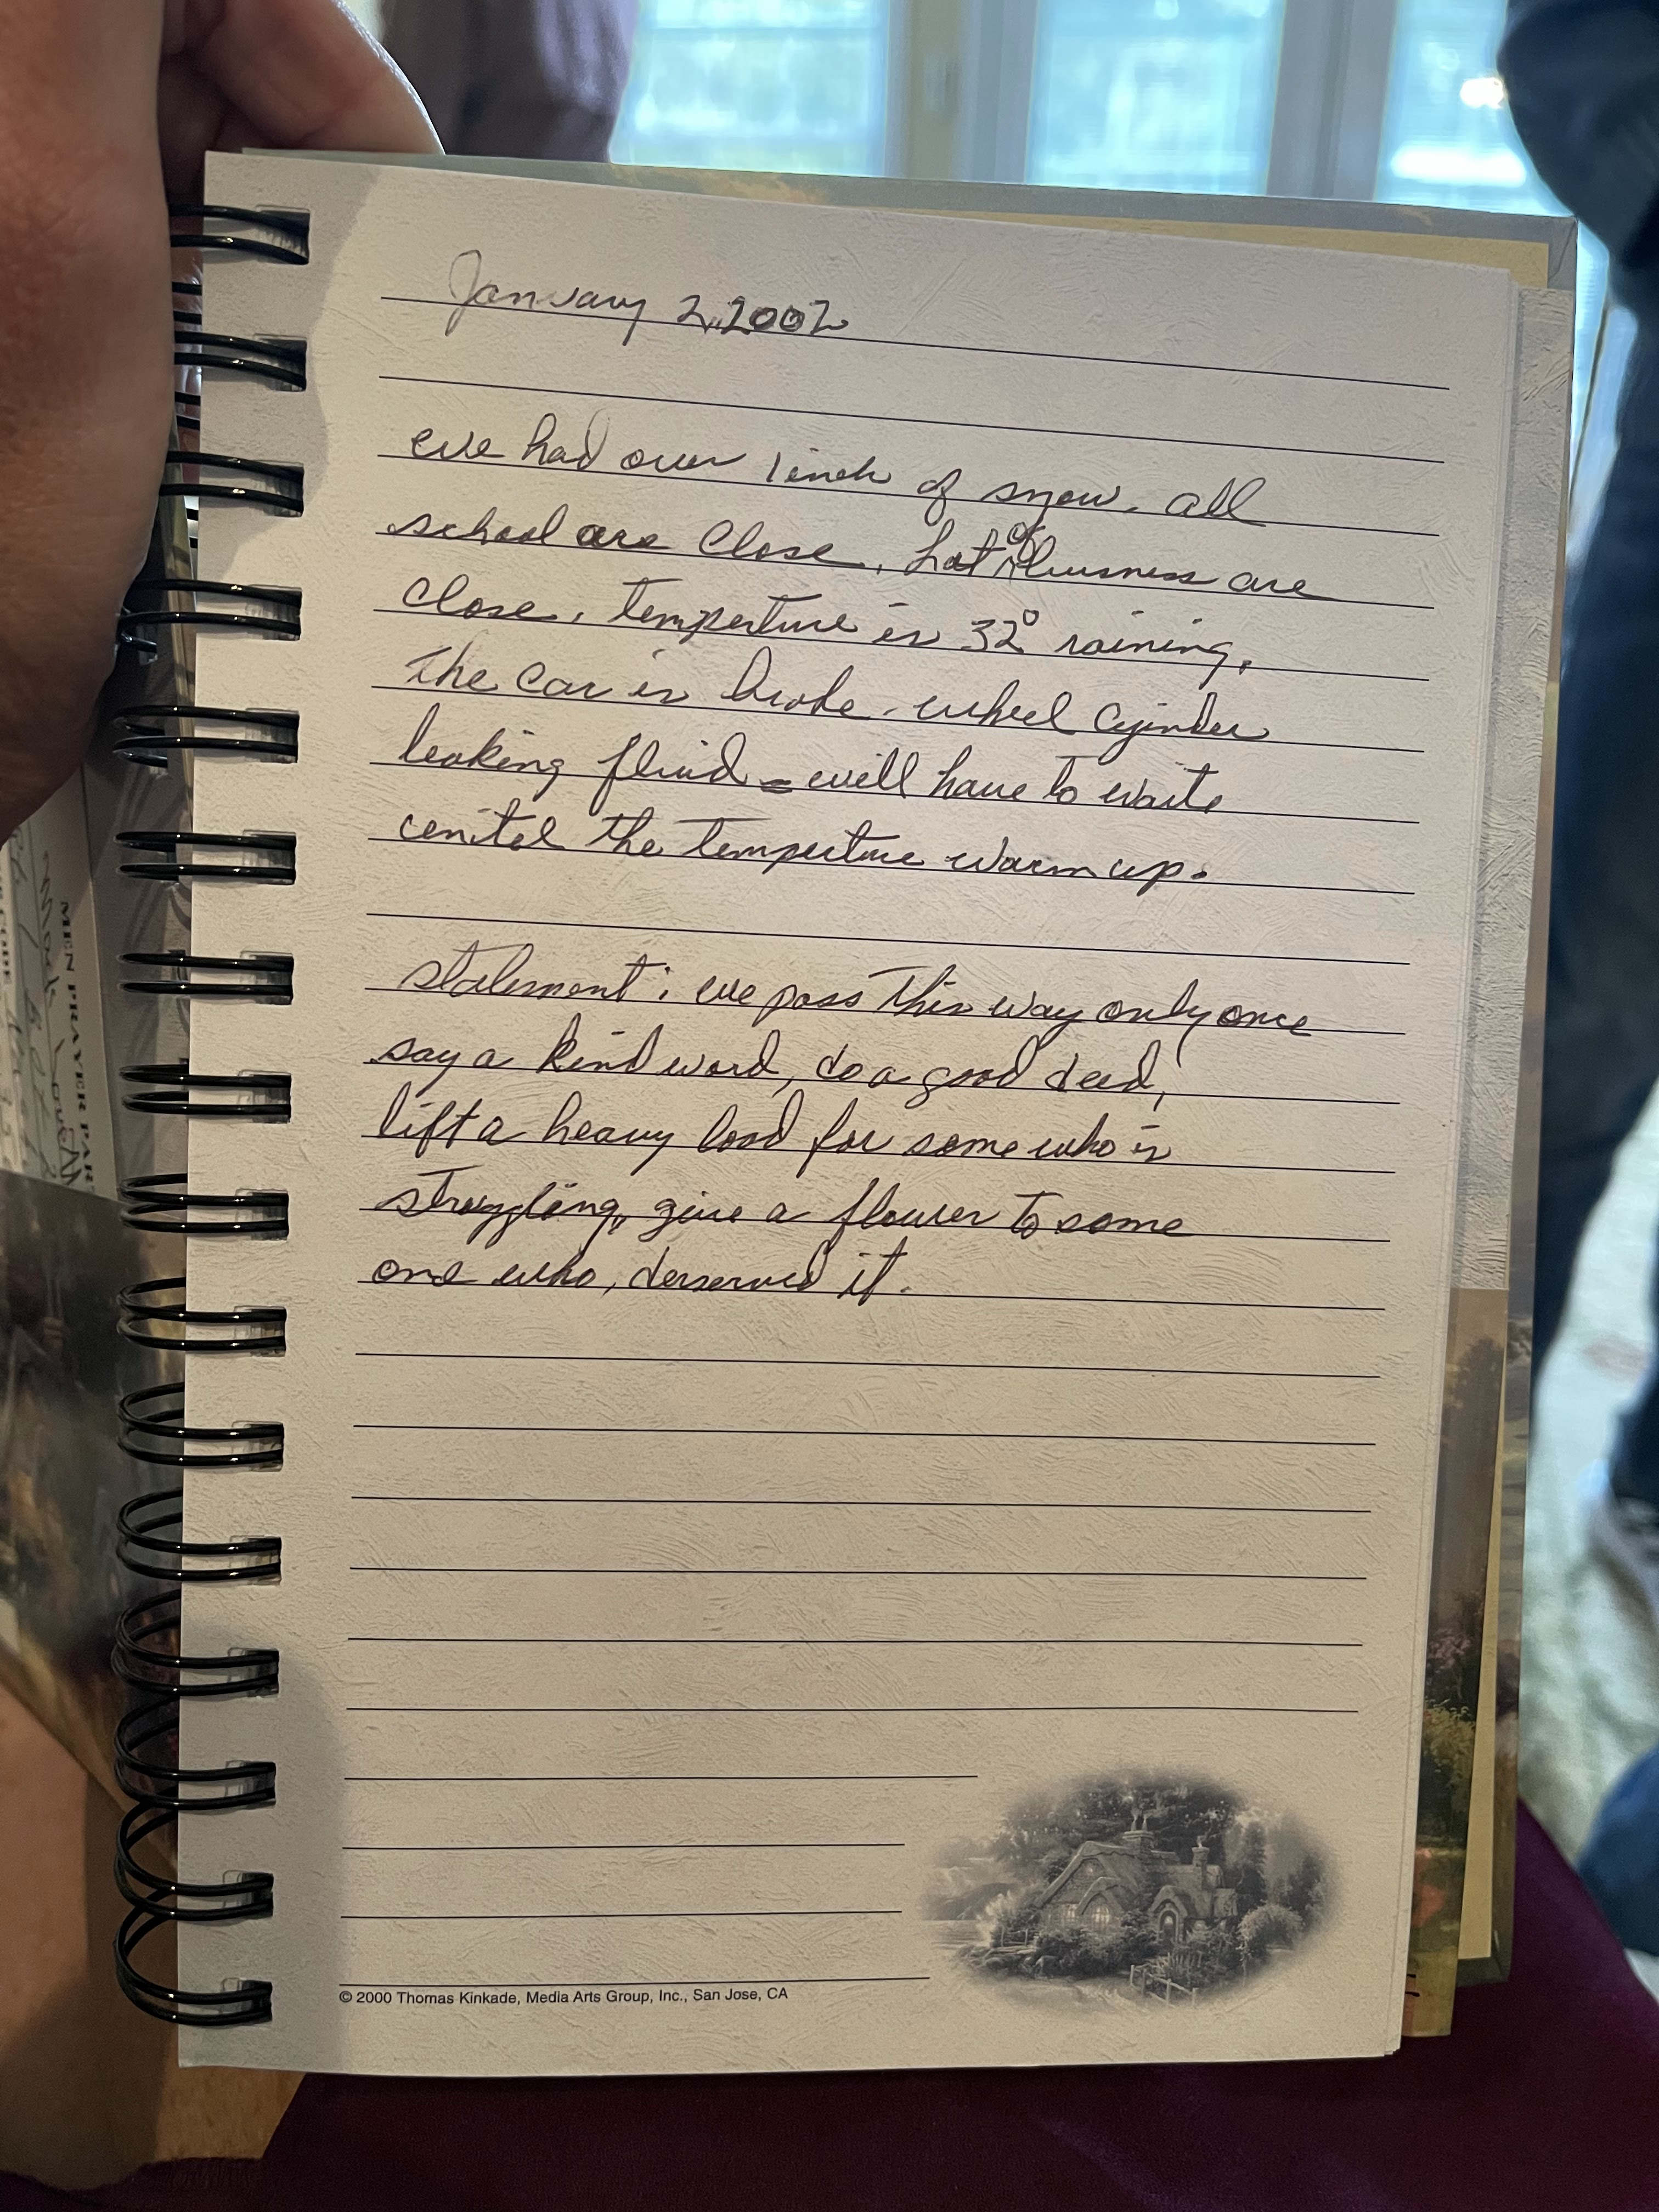 January 2, 2002
we had over 1 inch of snow. all
school are close, lot of busness are
close, temperture is 32° raining.
The car is broke - wheel cyinder
leaking fluid - will have to waite
untel the temperture warm up.
statement: we pass this way only once
say a kind word, do a good deed,
lift a heavy load for some who is
struggling, give a flower to some
one who, derserved it.
© 2000 Thomas Kinkade, Media Arts Group, Inc., San Jose, CA
MEN PRAYER PAR